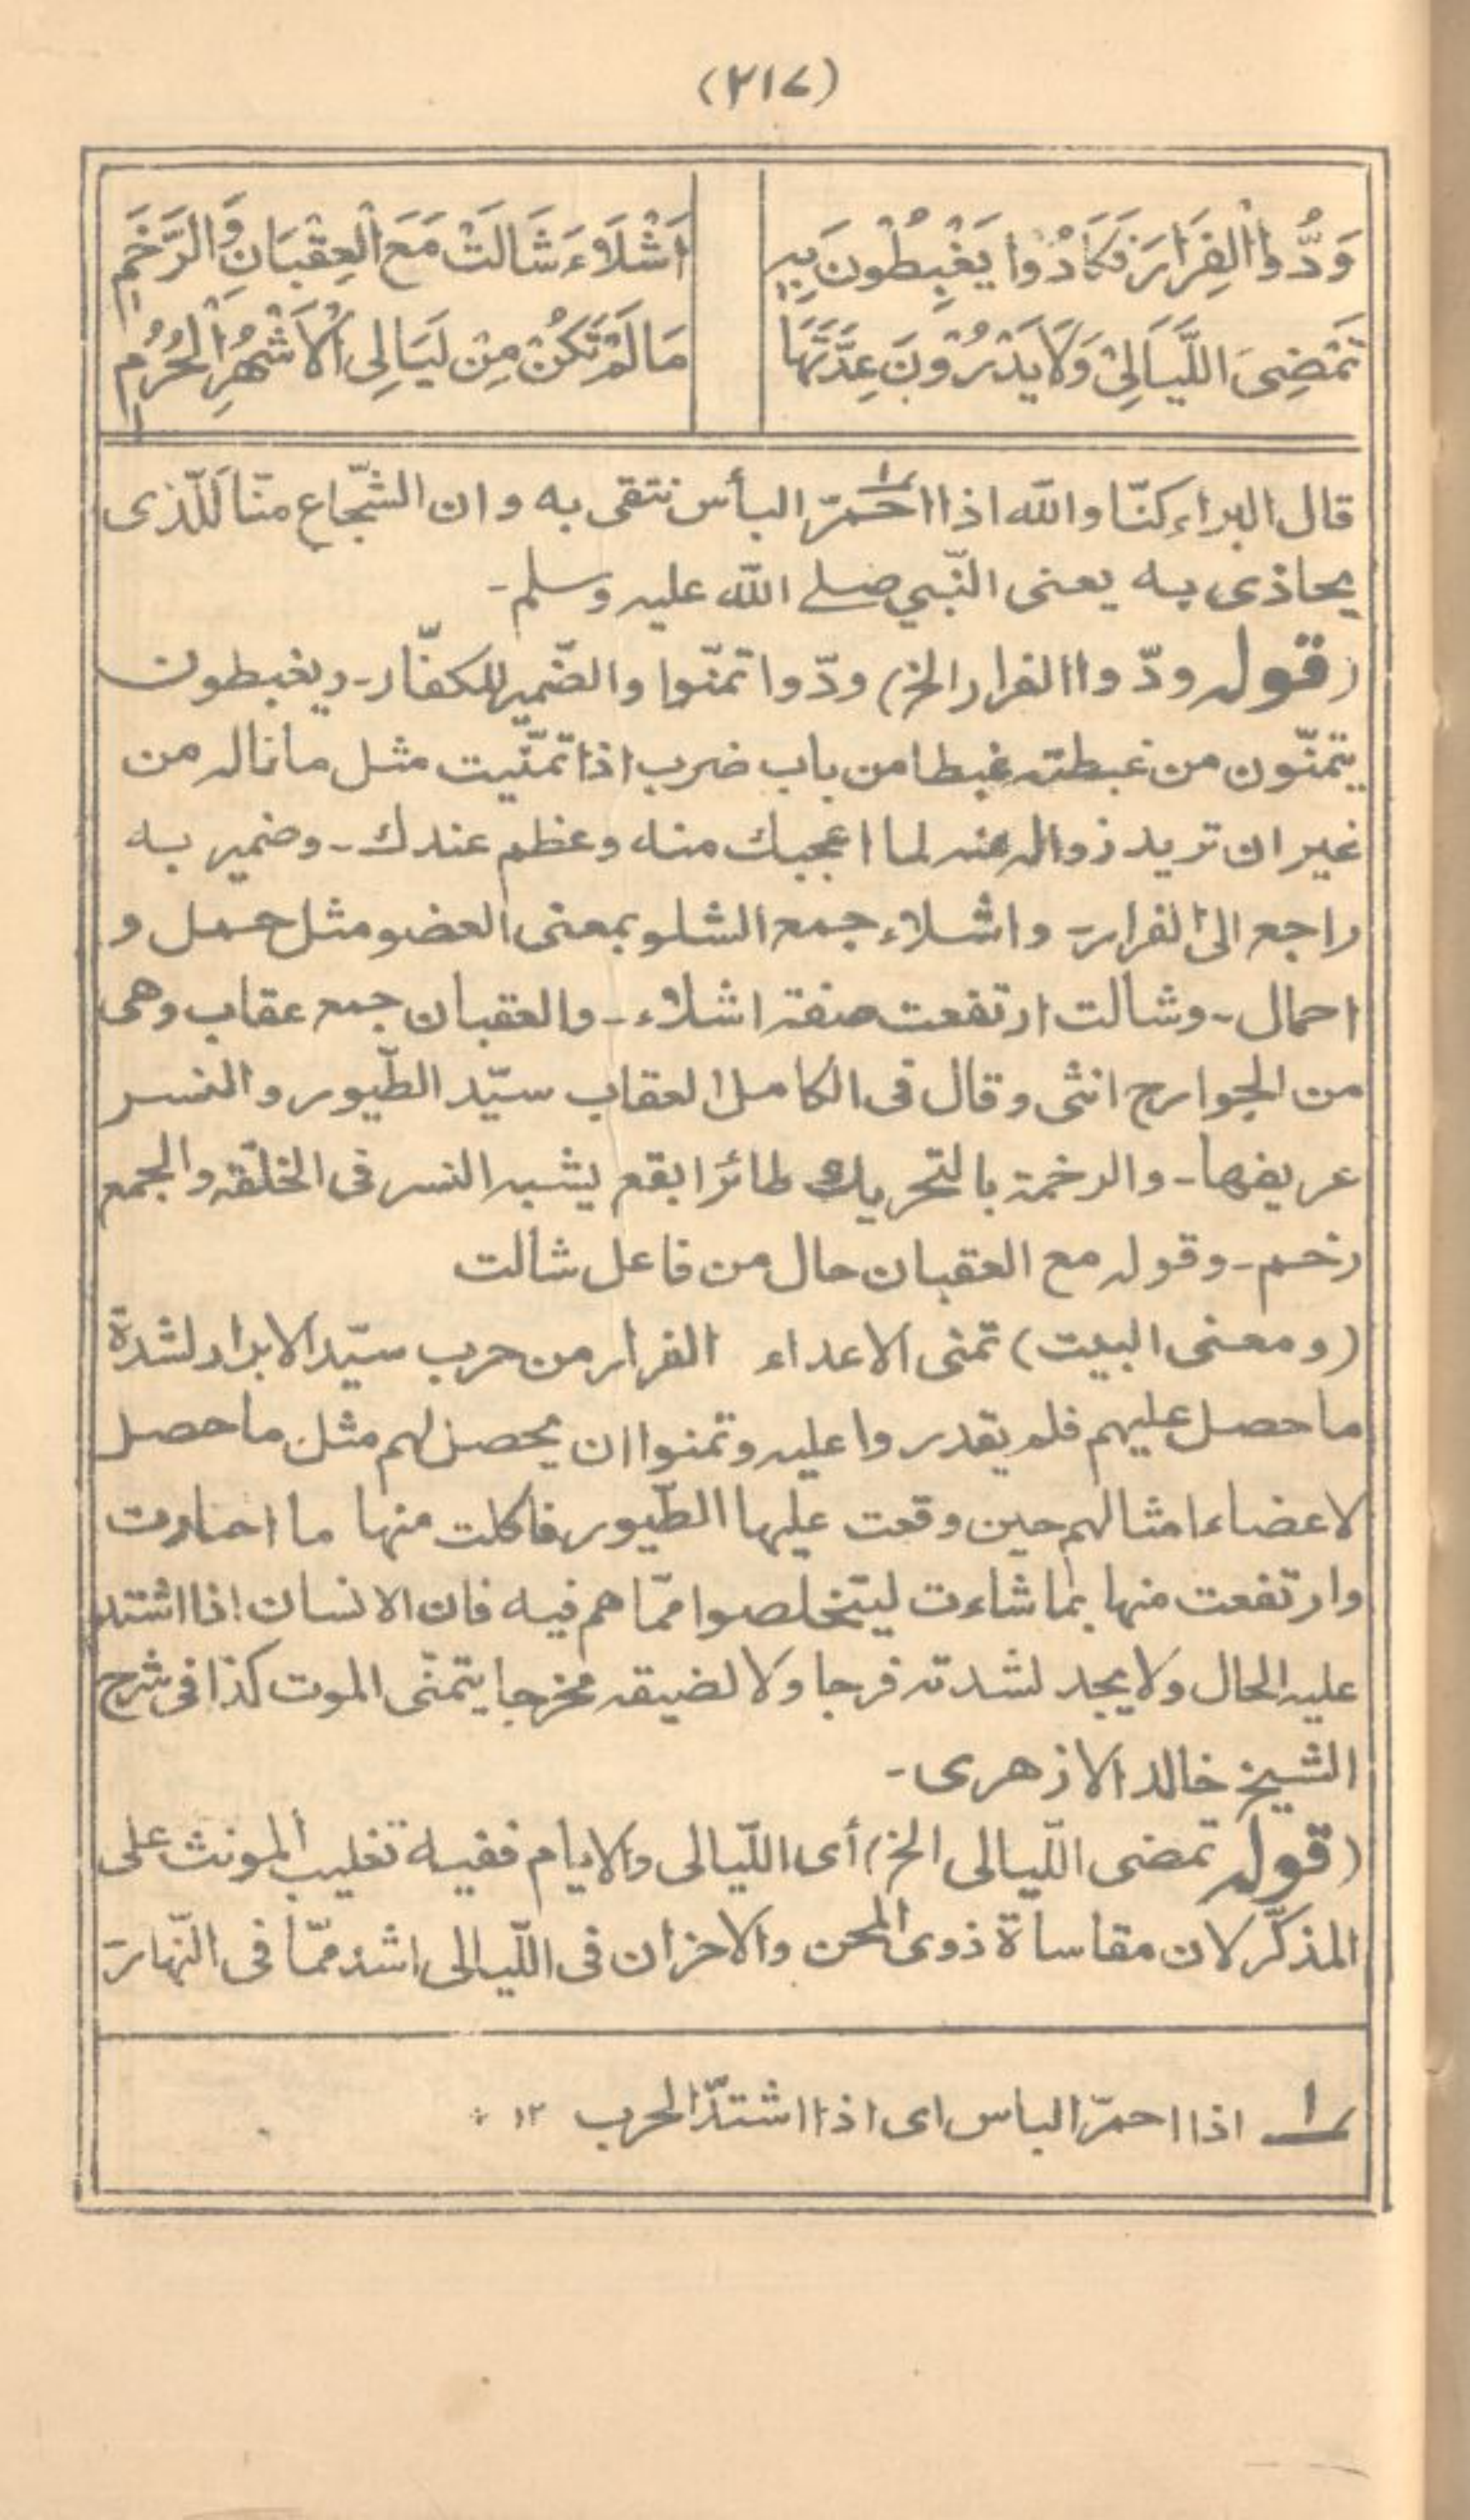 (۲۱۷)
وَدُّوا الْفِرَارَ فَكَادُوْا يَغْبِطُوْنَ بِهِ
اَشْلَاءَ شَالَتْ مَعَ الْعِقْبَانِ وَالرَّخَمِ
تَمْضِی اللَّيَالِیْ وَلَا يَدْرُوْنَ عِدَّتَهَا
مَا لَمْ تَكُنْ مِنْ لَيَالِی الْاَشْهُرِ الْحُرُمِ
قال البراء كنّا والله اذا احمرّ البأس نتقی به وان الشّجاع منّا للّذی
يحاذی به يعنی النّبی صلے الله عليه وسلم۔
(قوله ودّوا الفرار الخ) ودّوا تمنّوا والضّمير للكفّار۔ ويغبطون
يتمنّون من غبطته غبطا من باب ضرب اذا تمنّيت مثل ما ناله من
غير ان تريد زواله عنه لما اعجبك منه وعظم عندك۔ وضمير به
راجع الی الفرار۔ واشلاء جمع الشلو بمعنی العضو مثل حمل و
احمال۔ وشالت ارتفعت صفة اشلاء۔ والعقبان جمع عقاب وهی
من الجوارح انثی وقال فی الكامل العقاب سيّد الطّيور والنسر
عريفها۔ والرخمة بالتحريك طائر ابقع يشبه النسر فی الخلقة والجمع
رخم۔ وقوله مع العقبان حال من فاعل شالت
(ومعنی البيت) تمنی الاعداء الفرار من حرب سيّد الابرار لشدة
ما حصل عليهم فلم يقدروا عليه وتمنوا ان يحصل لهم مثل ما حصل
لاعضاء امثالهم حين وقعت عليها الطّيور فاكلت منها ما اختارت
وارتفعت منها بما شاءت ليتخلصوا ممّا هم فيه فان الانسان اذا اشتد
عليه الحال ولا يجد لشدته فرجا ولا لضيقه مخرجا يتمنّی الموت كذا فی شرح
الشيخ خالد الازهری۔
(قوله تمضی اللّيالی الخ) أی اللّيالی والايام ففيه تغليب المونث علی
المذكّر لان مقاساة ذوی المحن والاحزان فی اللّيالی اشد ممّا فی النّهار۔
۱ اذا احمرّ الباس ای اذا اشتدّ الحرب ۱۲ *